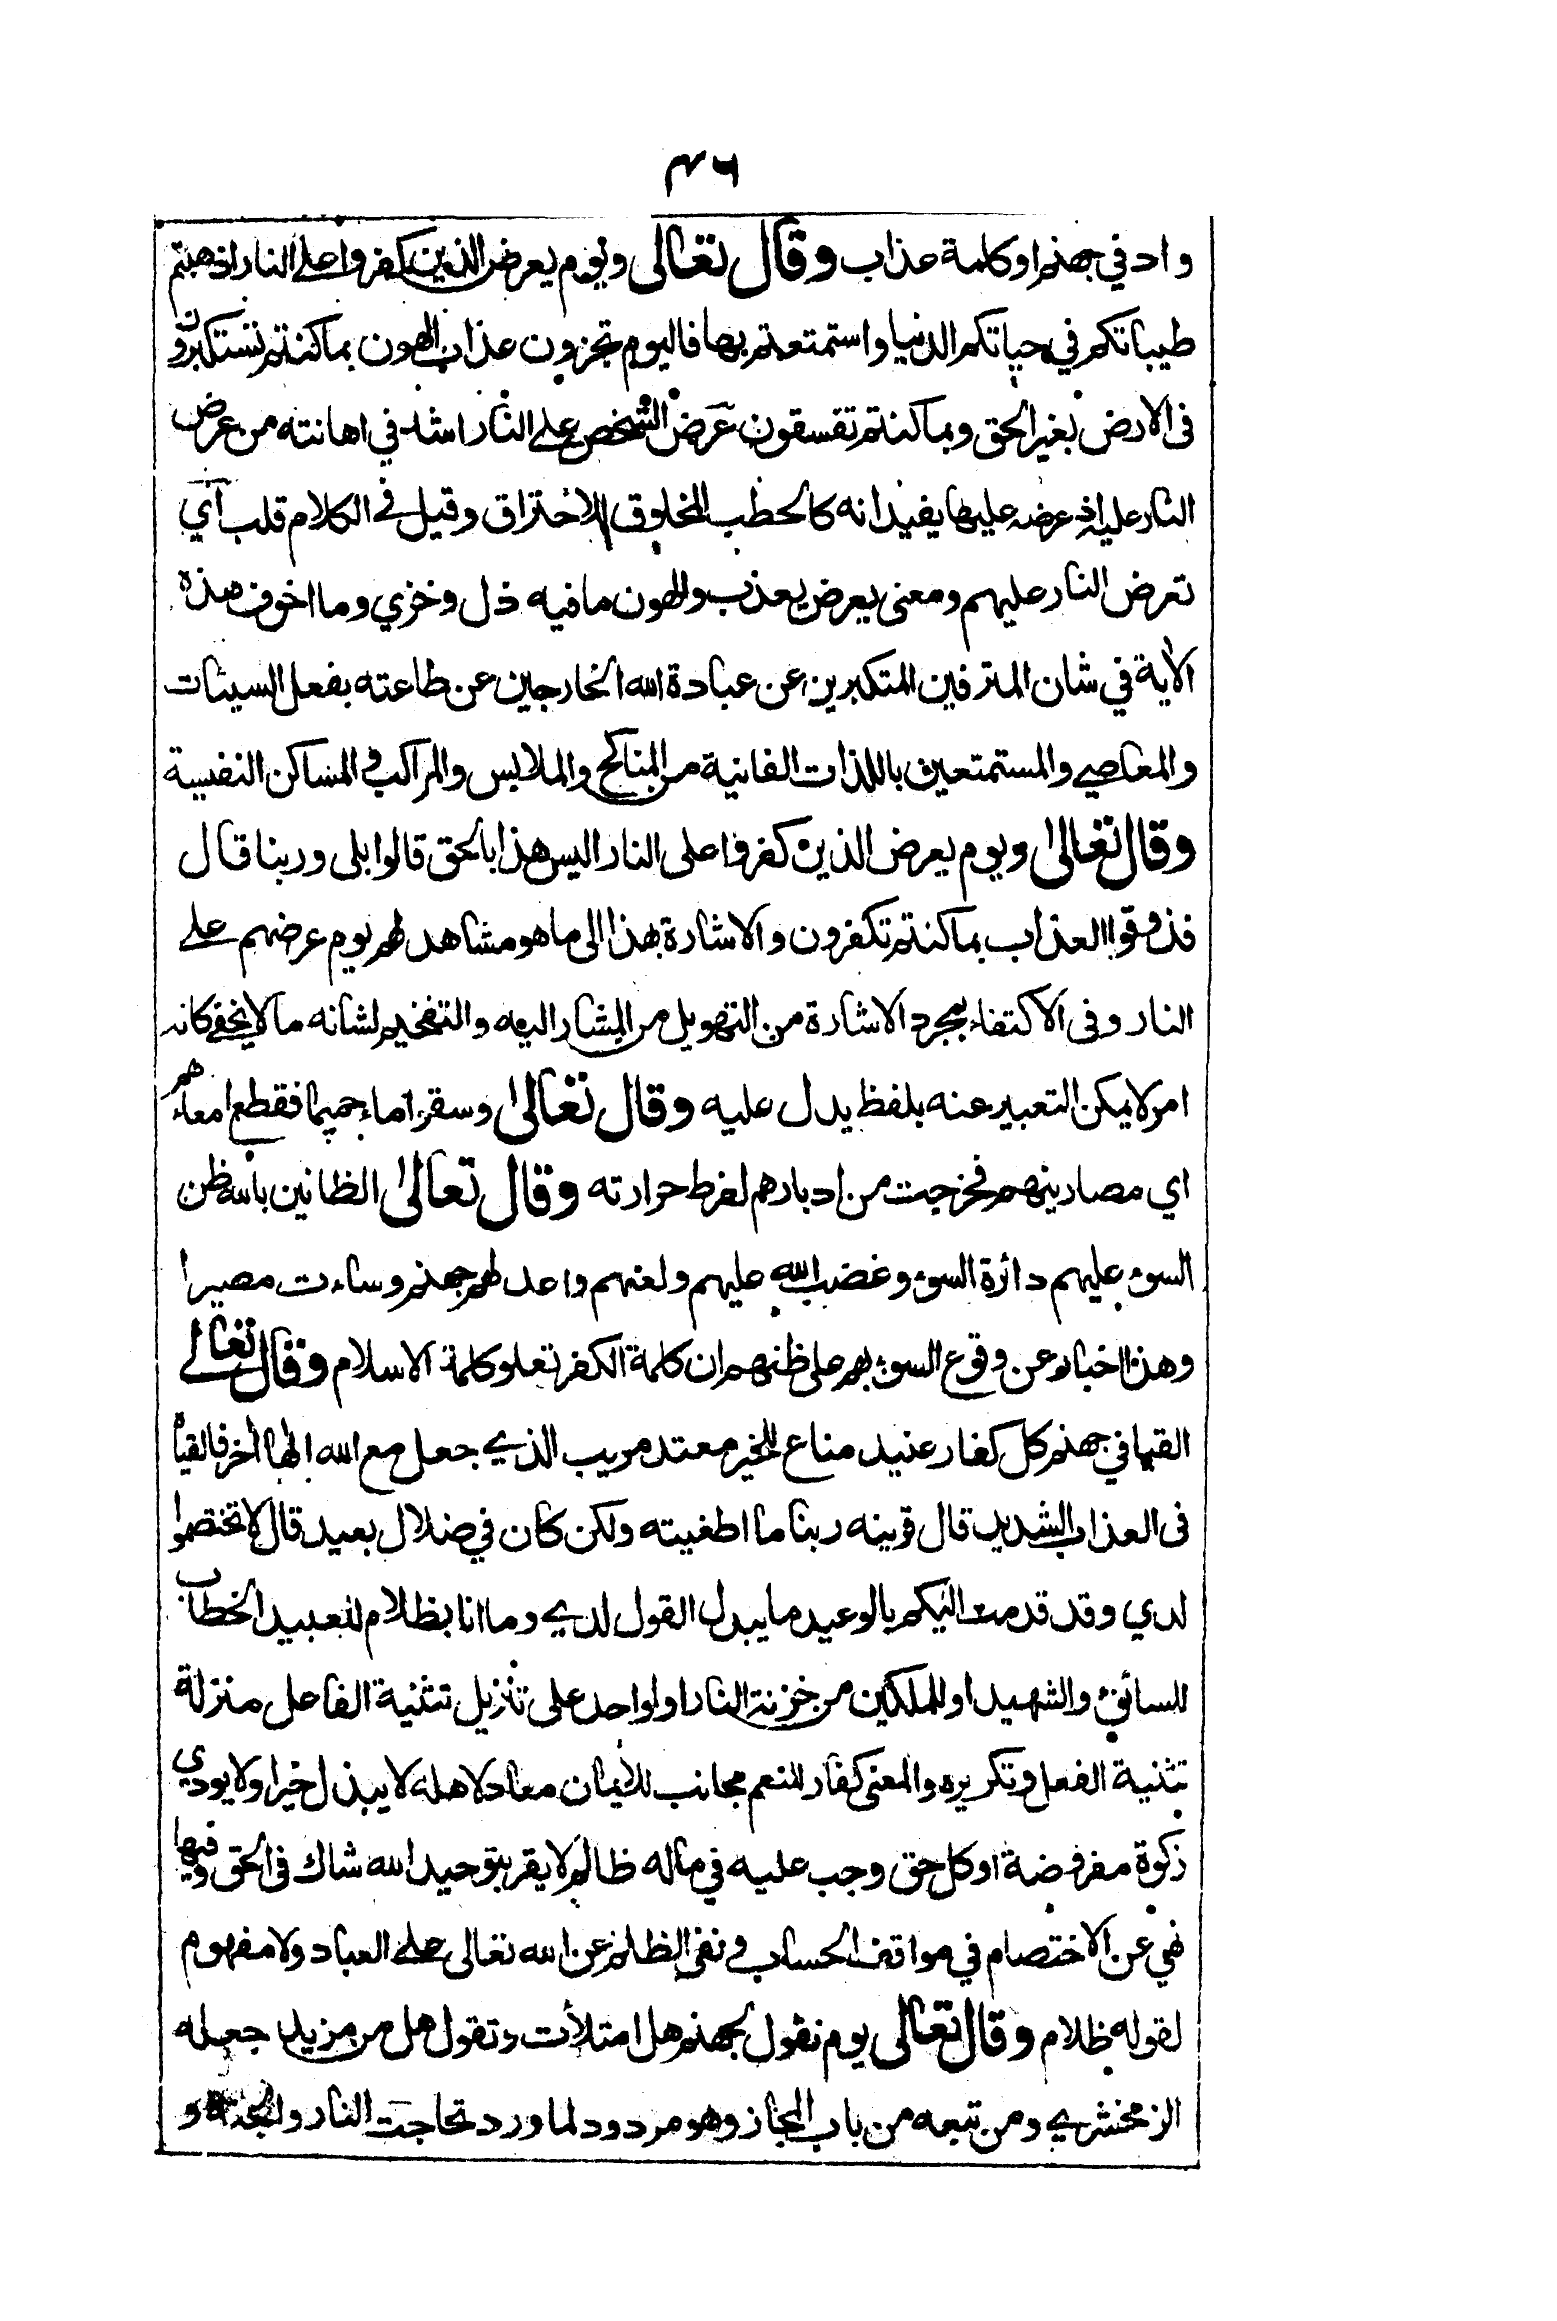 ٤٦
واد في جهنم او كلمة عذاب وقال تعالى ويوم يعرض الذين كفروا على النار اذهبتم
طيباتكم في حياتكم الدنيا واستمتعتم بها فاليوم تجزون عذاب الهون بما كنتم تستكبرون
فى الارض بغير الحق وبما كنتم تفسقون عرض الشخص على النار اشد في اهانته من عرض
النار عليه اذ عرضه عليها يفيد انه كالحطب المخلوق للاحتراق وقيل في الكلام قلب اي
تعرض النار عليهم ومعنى يعرض يعذب والهون ما فيه ذل وخزي وما اخوف هذه
الاية في شان المترفين المتكبرين عن عبادة الله الخارجين عن طاعته بفعل السيئات
والمعاصي والمستمتعين باللذات الفانية من المناكح والملابس والمراكب والمساكن النفيسة
وقال تعالى ويوم يعرض الذين كفروا على النار اليس هذا بالحق قالوا بلى وربنا قال
فذوقوا العذاب بما كنتم تكفرون والاشارة بهذا الى ما هو مشاهد لهم يوم عرضهم على
النار وفى الاكتفاء بمجرد الاشارة من التهويل من المشار اليه والتفخيم لشانه ما لا يخفى كانه
امر لا يمكن التعبير عنه بلفظ يدل عليه وقال تعالى وسقوا ماء حميما فقطع امعاءهم
اي مصارينهم فخرجت من ادبارهم لفرط حرارته وقال تعالى الظانين بالله ظن
السوء عليهم دائرة السوء وغضب الله عليهم ولعنهم واعد لهم جهنم وساءت مصيرا
وهذا اخبار عن وقوع السوء بهم على ظنهم ان كلمة الكفر تعلو كلمة الاسلام وقال تعالى
القيا في جهنم كل كفار عنيد مناع للخير معتد مريب الذي جعل مع الله الها آخر فالقياه
فى العذاب الشديد قال قرينه ربنا ما اطغيته ولكن كان في ضلال بعيد قال لا تختصموا
لدي وقد قدمت اليكم بالوعيد ما يبدل القول لدي وما انا بظلام للعبيد الخطاب
للسائق والشهيد او للملكين من خزنة النار او لواحد على تنزيل تثنية الفاعل منزلة
تثنية الفعل وتكريره والمعنى كفار للنعم مجانب للايمان معاد لاهله لا يبذل خيرا ولا يودي
زكوة مفروضة او كل حق وجب عليه في ماله ظالم لا يقر بتوحيد الله شاك فى الحق وفيها
نهي عن الاختصام في مواقف الحساب و نفى الظلم عن الله تعالى على العباد ولا مفهوم
لقوله بظلام وقال تعالى يوم نقول لجهنم هل امتلأت وتقول هل من مزيد جعله
الزمخشري ومن تبعه من باب المجاز وهو مردود لما ورد تحاجت النار والجنة و